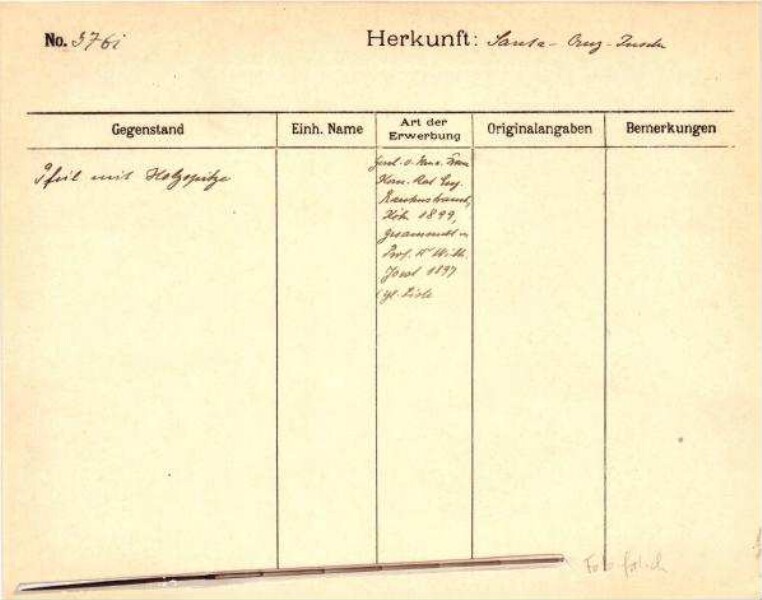 No. 376i
Herkunft: Santa-Cruz-Inseln
Gegenstand
Einh. Name
Art der Erwerbung
Originalangaben
Bemerkungen
Pfeil mit Holzspitze
Gesch. v. Frau
Kom. Rat Eug.
Rautenstrauch,
Köln 1899,
gesammelt v.
Prof. Dr Wilh.
Joest 1897
Liste
Foto falsch